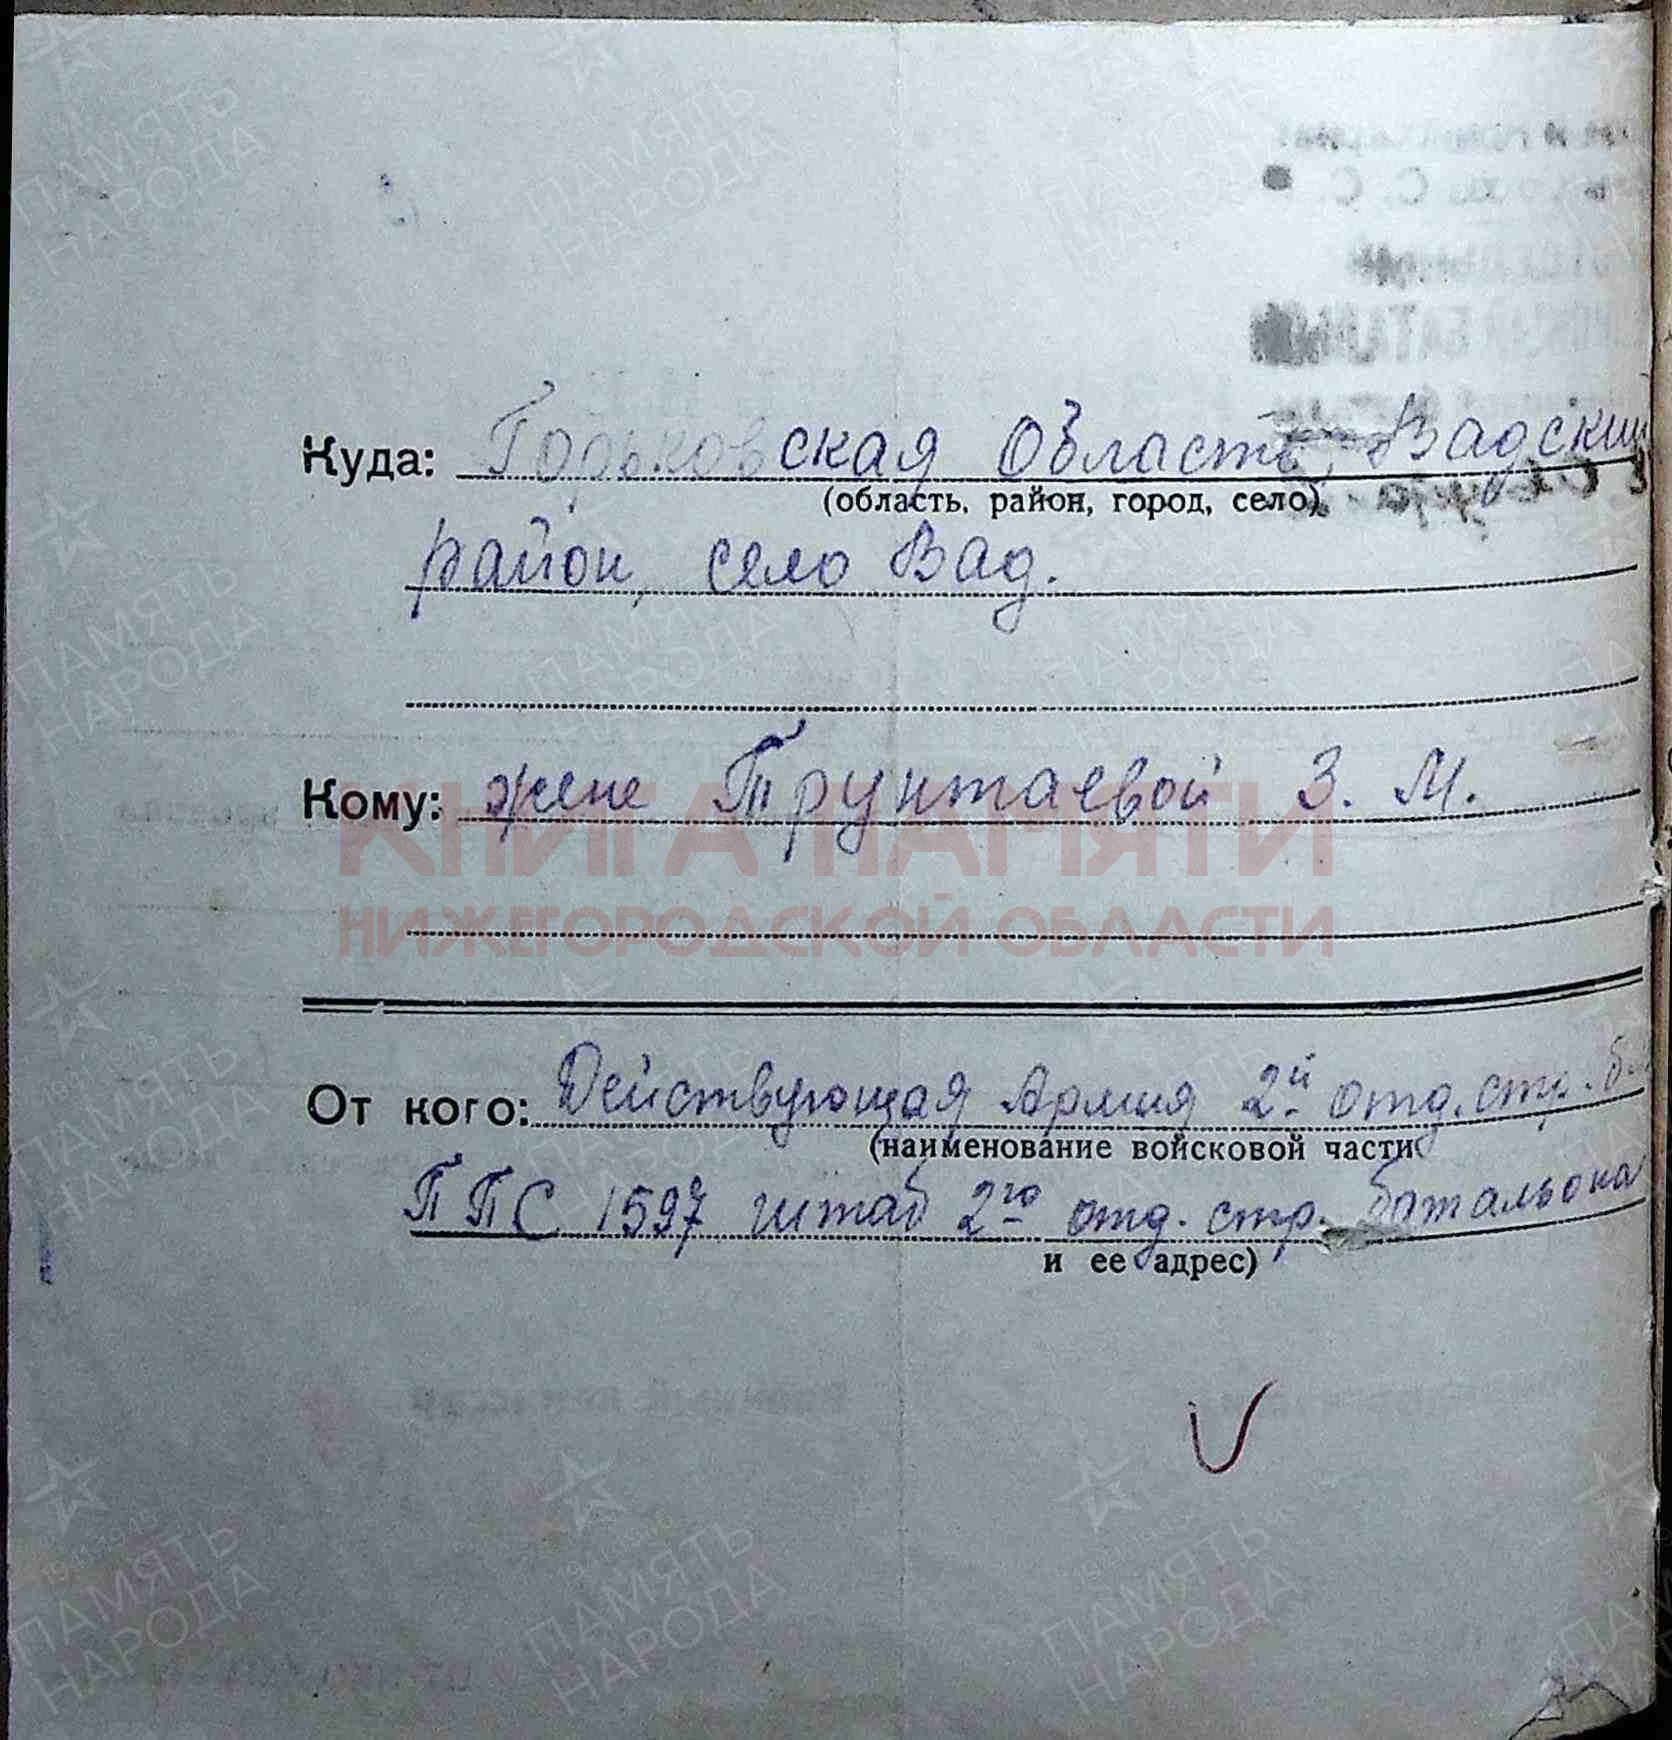 Куда: Горьковская Область, Вадский
(область, район, город, село)
район, село Вад.
Кому: жене Трунтаевой З. М.
КНИГА ПАМЯТИ
НИЖЕГОРОДСКОЙ ОБЛАСТИ
От кого: Действующая Армия 2й отд. стр. б
(наименование войсковой части
ППС 1597 штаб 2го отд. стр. батальона
и ее адрес)
ПАМЯТЬ
НАРОДА